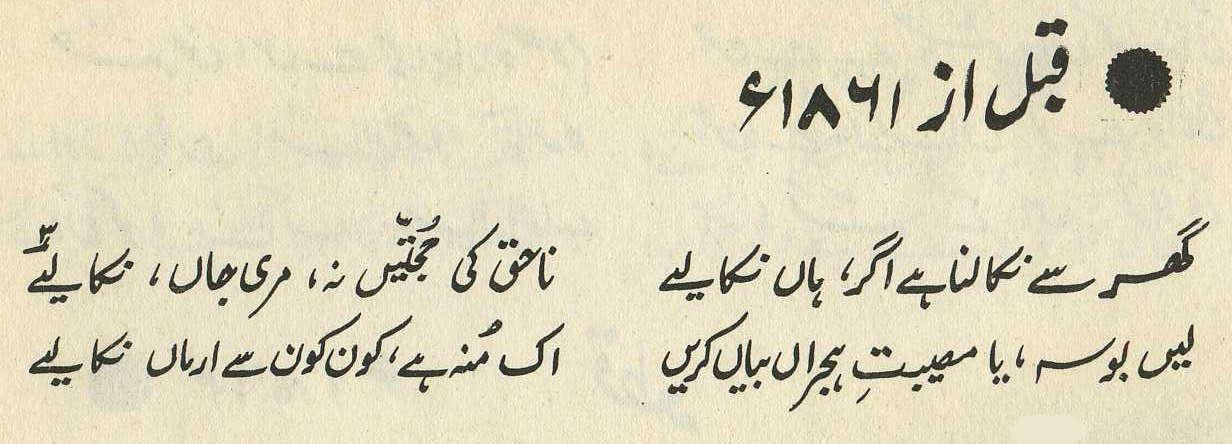 قبل از ۱۸۶۱ء
گھر سے نکالنا ہے اگر، ہاں نکالیے ناحق کی حُجتیّں نہ، مری جاں، نکالیے۳
لیں بوسہ، یا مصیبتِ ہجراں بیاں کریں اک مُنہ ہے، کون کون سے ارماں نکالیے